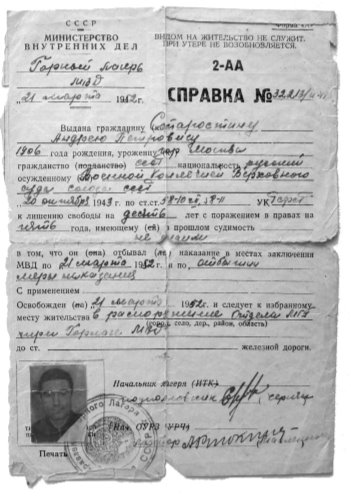 СССР
МИНИСТЕРСТВО
ВНУТРЕННИХ ДЕЛ
Горный лагерь
МВД
„21 марта 1952 г.
Форма
ВИДОМ НА ЖИТЕЛЬСТВО НЕ СЛУЖИТ.
ПРИ УТЕРЕ НЕ ВОЗОБНОВЛЯЕТСЯ.
2-АА
СПРАВКА №
Выдана гражданину Старостину
Андрею Петровичу
1906 года рождения, урожен гор Москва
гражданство (подданство) ссср национальность русский
осужденному Военной коллегией Верховного
суда союза ссср
20 октября 1943 по ст.ст. УК
к лишению свободы на десять лет с поражением в правах на
пять года, имеющему (ей) в прошлом судимость
не судим
в том, что он (она) отбывал (ла) наказание в местах заключения
МВД по 21 марта 1952 г. и по отбытии
меры наказания
С применением
Освобожден (на) 21 марта 1952 г. и следует к избранному
месту жительства в распоряжение отдела
(город, село, дер., район, область)
при Горлаге МВД
до ст. железной дороги.
Начальник лагеря (ИТК)
Нач. ОУРЗ (УРЧ)
Печать